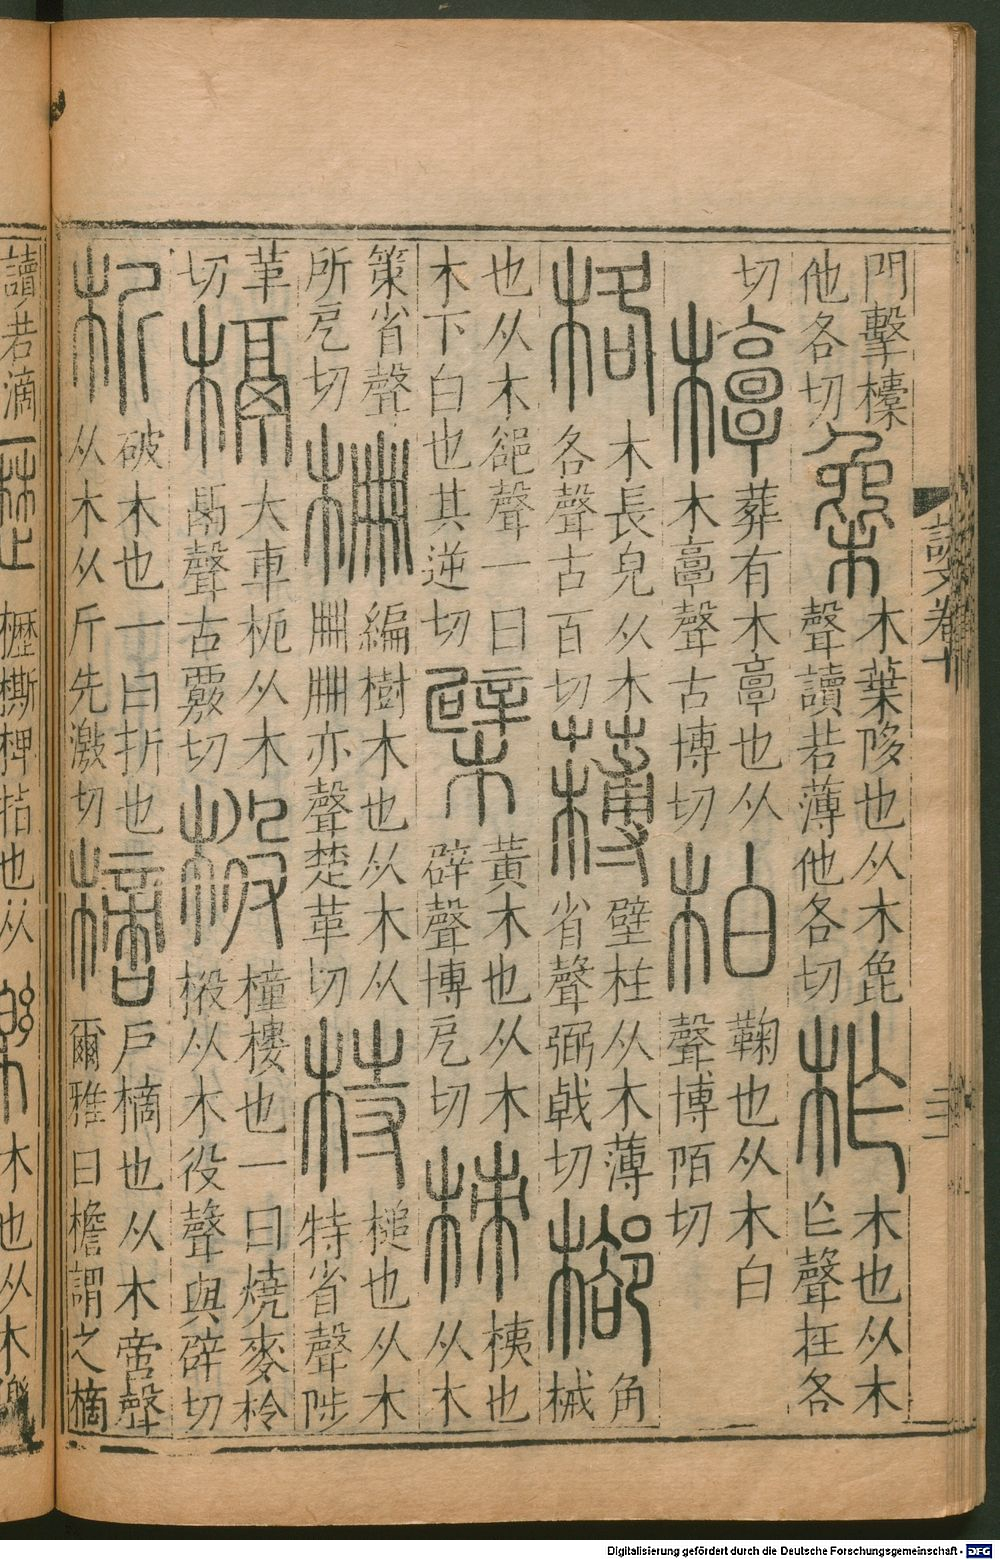 門擊㯓
他各切
㲋木 木葉陊也从木㲋
聲讀若薄他各切
柞 木也从木
亡聲在各
切
槨 葬有木𩫏也从
木𩫏聲古博切
柏 鞠也从木白
聲博陌切
格 木長皃从木
各聲古百切
欂 壁柱从木薄
省聲弼戟切
㮝 角械
也从木卻聲一曰
木下白也其逆切
檗 黃木也从木
辟聲博戹切
梜 梜也
从木
策省聲
所戹切
柵 編樹木也从木从
冊冊亦聲楚革切
槌也从木
特省聲陟
革切
槅 大車枙从木
鬲聲古覈切
橦樓也一曰燒麥柃
椴从木役聲與辟切
析 破木也一曰折也
从木从斤先激切
樀 戶樀也从木啻聲
爾雅曰檐謂之樀
讀若滴
櫪 櫪㯕椑指也从
木也从木
說文卷十
Digitalisierung gefördert durch die Deutsche Forschungsgemeinschaft - DFG